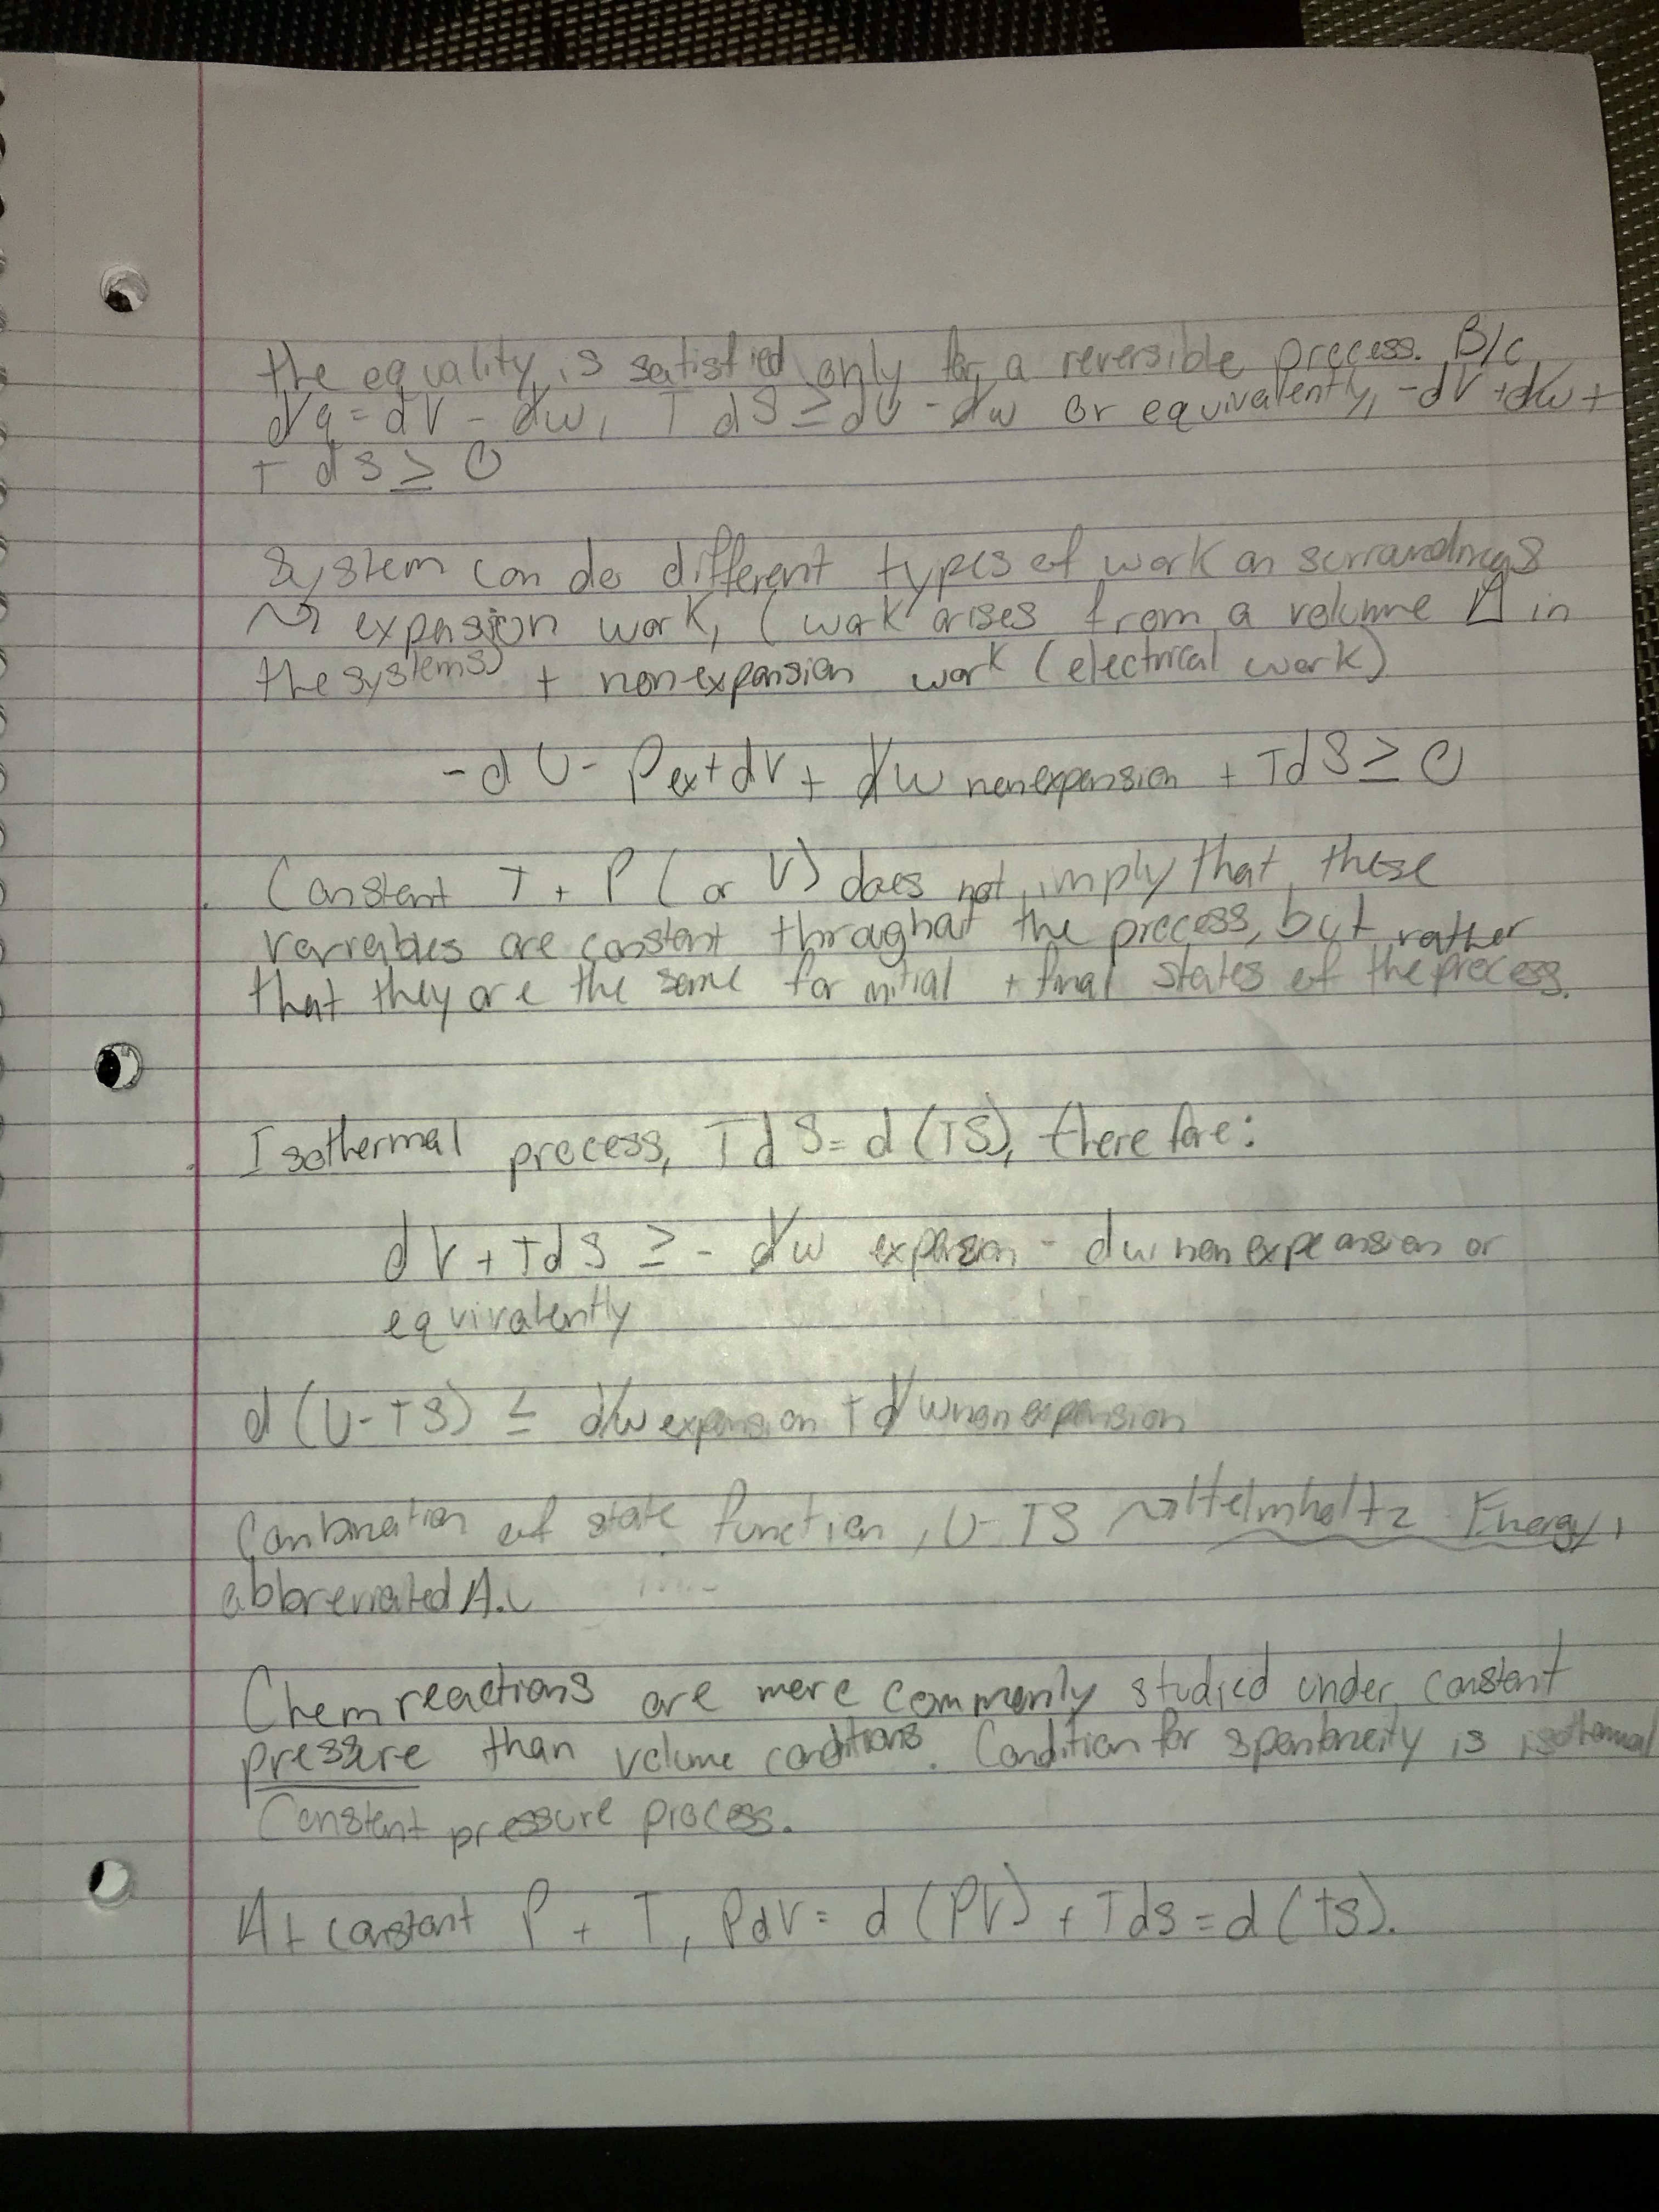 the equality is satisfied only for a reversible process. B/c
đq = dV - đw, T dS ≥ dU - đw or equivalently, -dV + đw +
T dS ≥ 0
System can do different types of work on surroundings
↝ expansion work, (work arises from a volume Δ in
the systems) + nonexpansion work (electrical work)
-dU - Pext dV + đw nonexpansion + TdS ≥ 0
Constant T + P (or V) does not imply that these
variables are constant throughout the process, but rather
that they are the same for initial + final states of the process.
Isothermal process, TdS = d(TS), therefore:
dV + TdS ≥ - đw expansion - dw nonexpeansion or
equivalently
d(U-TS) ≤ đw expansion + đw nonexpansion
Combination of state function, U-TS ↝ Helmholtz Energy,
abbreviated A.
Chem reactions are more commonly studied under constant
pressure than volume conditions. Condition for spontaneity is isothermal
Constant pressure process.
At constant P + T, PdV = d(PV) + TdS = d(TS).